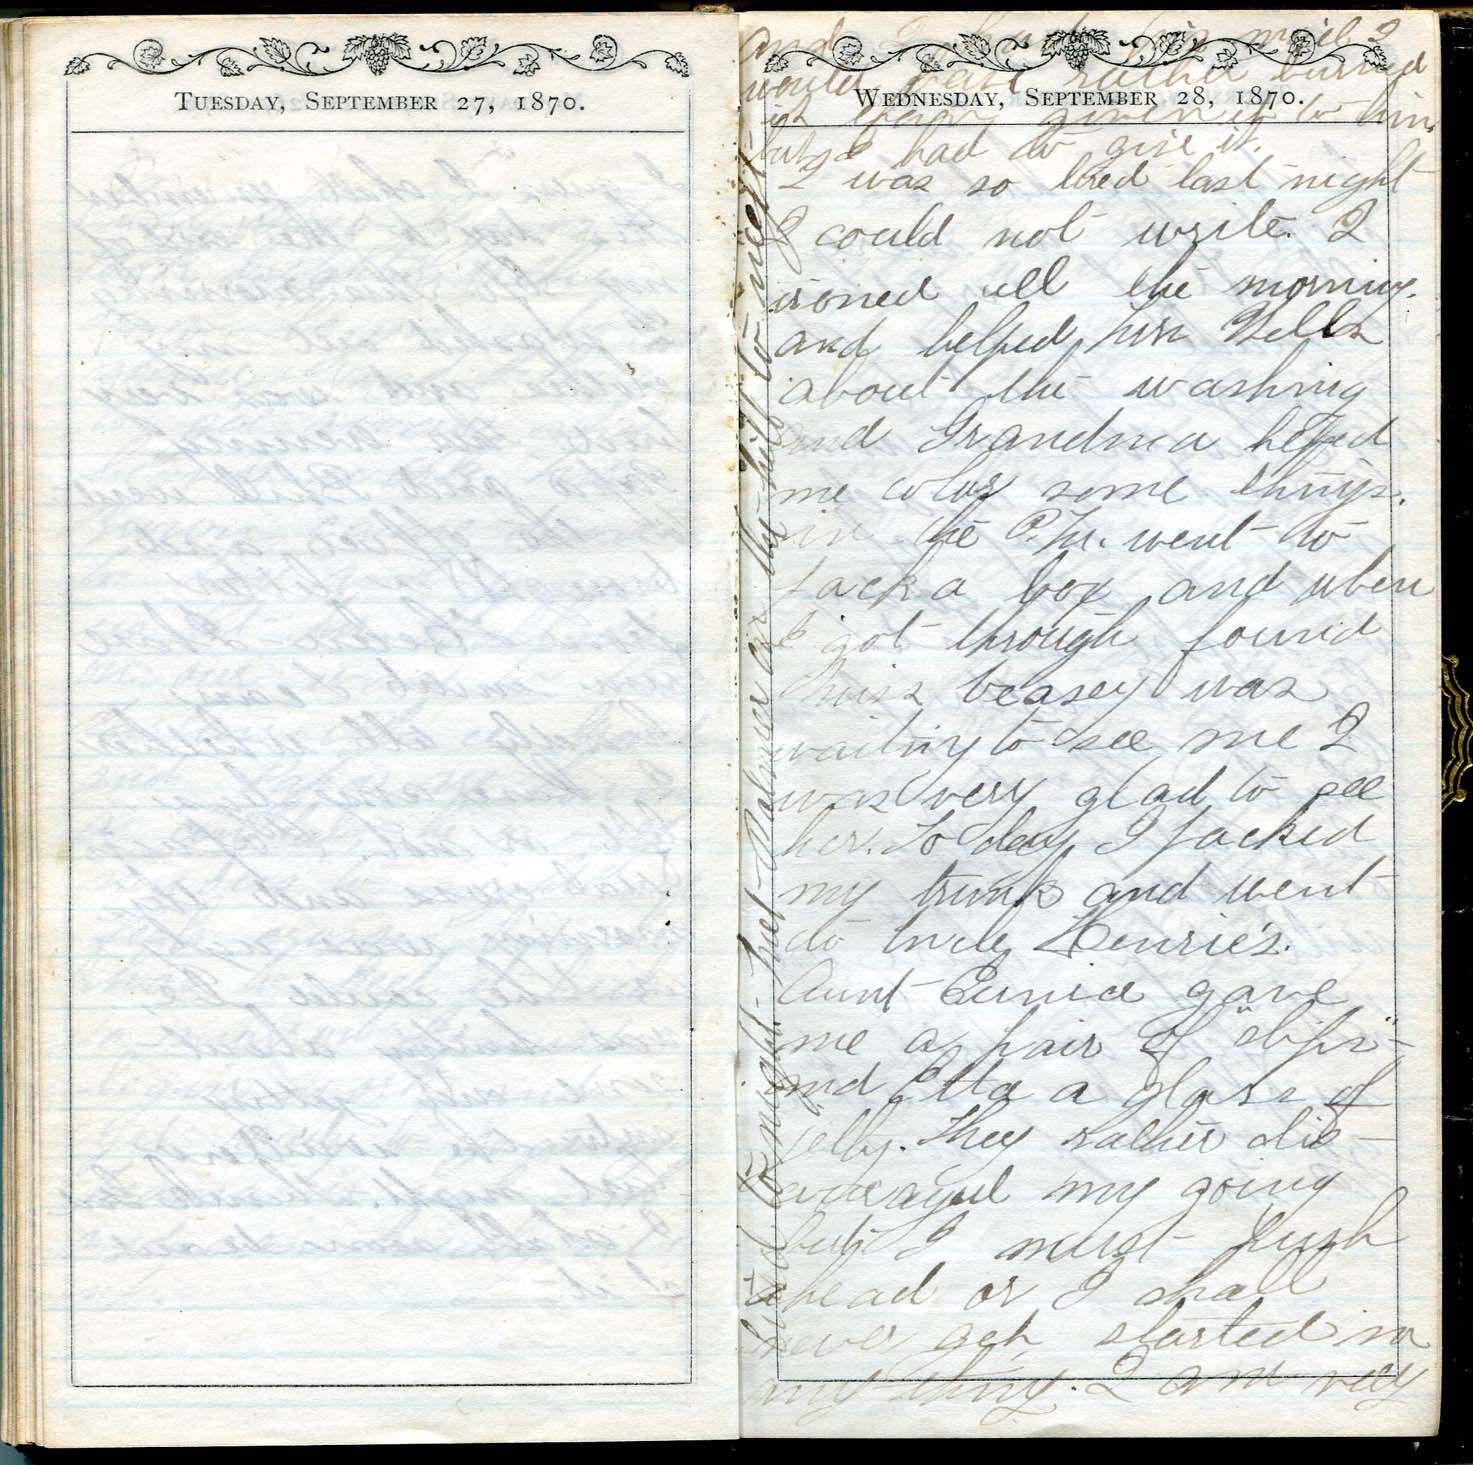 TUESDAY, SEPTEMBER 27, 1870.
WEDNESDAY, SEPTEMBER 28, 1870.
I was so tired last night
I could not write. I
ironed all the morning.
and helped Mrs Wells
about the washing
and Grandma helped
me color some things.
in the P.M. went to
pack a box and when
I got through found
Miss beasey was
waiting to see me I
was very glad to see
her. To day I packed
my trunk and went
to Uncle Henrie's.
Aunt Eunice gave
me a pair of "slips"
and Etta a glass of
jelly. They rather dis-
couraged my going
but I must push
ahead or I shall
never get started in
my thing. I am very
tired to night. Met Palmer on the hill to night
and
would have rather burned
it than given it to him
but I had to give it.